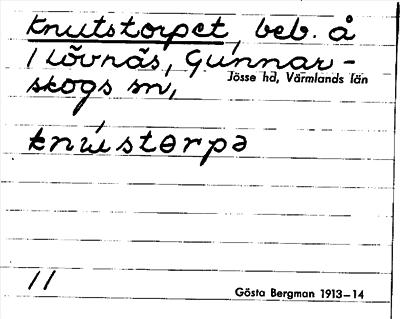 Knutstorpet, beb. å
1 Lövnäs, Gunnar-
skogs sn,
Jösse hd, Värmlands län
knustərpə
11
Gösta Bergman 1913–14